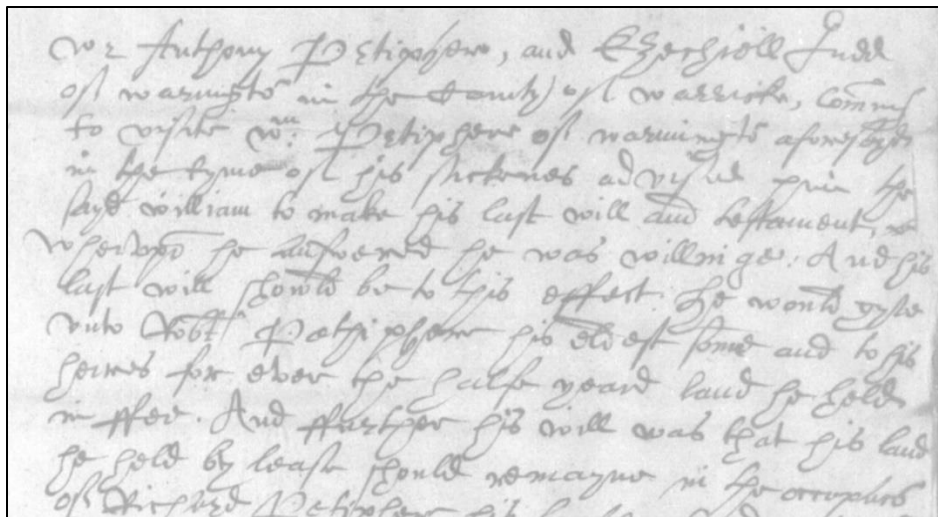 wee Anthony Petiphere, and Ezechiell Judd
of warmingtō in the County of warricke, Comīg
to visite Wm: Petiphere of warmingtō aforesayd
in the tyme of his sicknes advised him the
sayd william to make his last will and testament,
Wherupō he answered he was willinge. And his
last will should be to this effect. he would gyve
unto Robt Pethiphere his eldest sonne and to his
heires for ever the halfe yeard land he held
in ffee. And ffurther his will was that his land
he held by lease should remayne in the
of Richard Petipher his